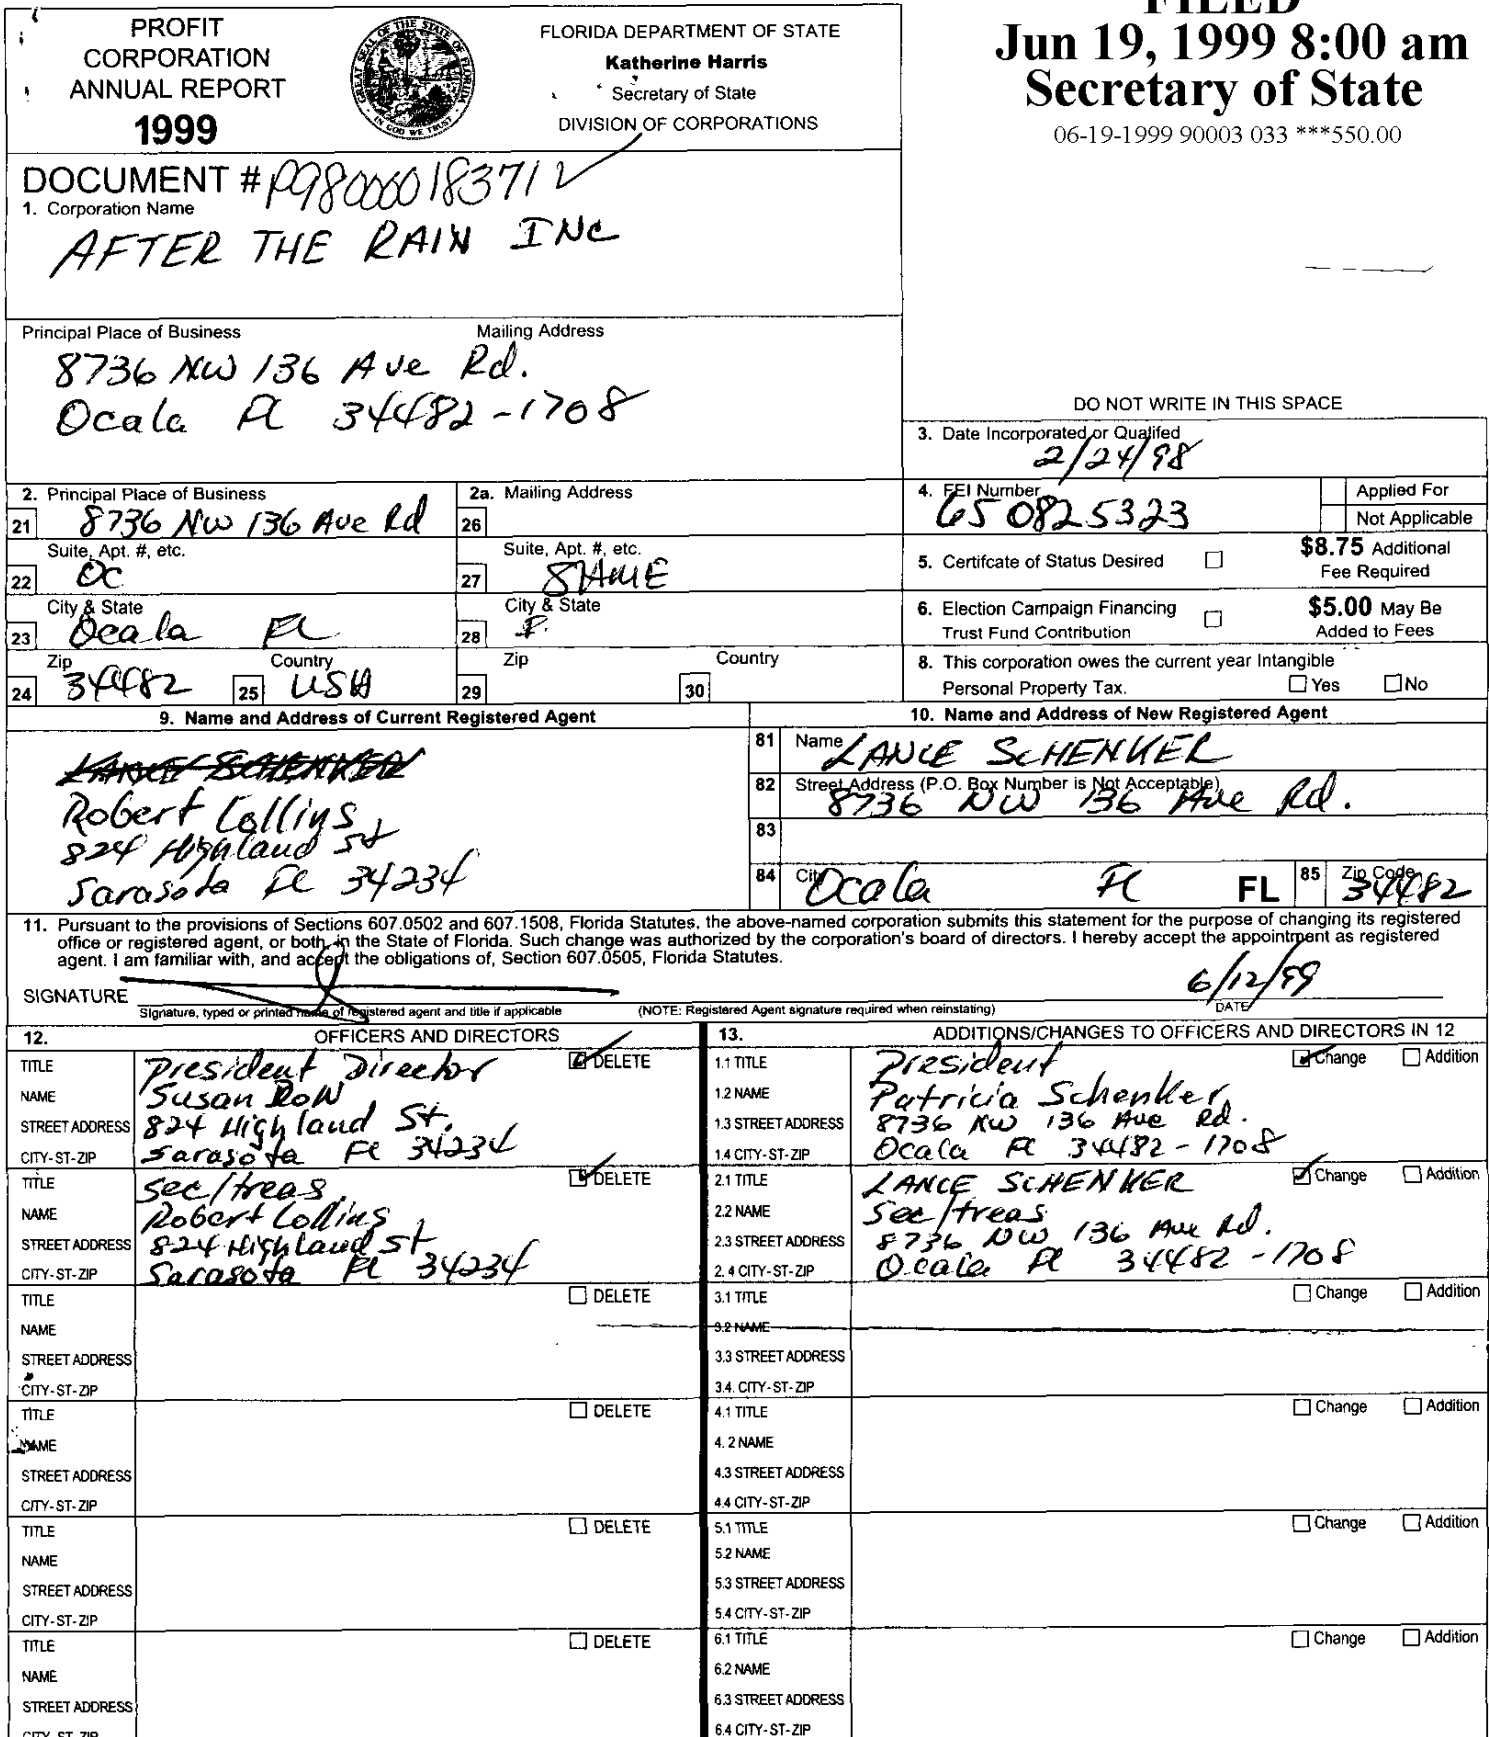 PROFIT
CORPORATION
ANNUAL REPORT
1999
GREAT SEAL OF THE STATE OF FLORIDA
IN GOD WE TRUST
FLORIDA DEPARTMENT OF STATE
Katherine Harris
Secretary of State
DIVISION OF CORPORATIONS
FILED
Jun 19, 1999 8:00 am
Secretary of State
06-19-1999 90003 033 ***550.00
DOCUMENT #
1. Corporation Name
AFTER THE RAIN INC
Principal Place of Business Mailing Address
8736 NW 136 Ave Rd.
Ocala FL 34482-1708
DO NOT WRITE IN THIS SPACE
3. Date Incorporated or Qualifed
2/24/98
2. Principal Place of Business
21 8736 NW 136 Ave Rd
2a. Mailing Address
26
4. FEI Number
65 0825323
Applied For
Not Applicable
Suite, Apt. #, etc.
22 OC
Suite, Apt. #, etc.
27 SAME
5. Certifcate of Status Desired
$8.75 Additional
Fee Required
City & State
23 Ocala FL
City & State
28
6. Election Campaign Financing
Trust Fund Contribution
$5.00 May Be
Added to Fees
Zip Country
24 34482 25 USA
Zip Country
29 30
8. This corporation owes the current year Intangible
Personal Property Tax. Yes No
9. Name and Address of Current Registered Agent
LANCE SCHENKER
Robert Collins
824 Highland St
Sarasota FL 34234
10. Name and Address of New Registered Agent
81 Name LANCE SCHENKER
82 Street Address (P.O. Box Number is Not Acceptable)
8736 NW 136 Ave Rd.
83
84 City Ocala FL FL 85 Zip Code 34482
11. Pursuant to the provisions of Sections 607.0502 and 607.1508, Florida Statutes, the above-named corporation submits this statement for the purpose of changing its registered
office or registered agent, or both, in the State of Florida. Such change was authorized by the corporation's board of directors. I hereby accept the appointment as registered
agent. I am familiar with, and accept the obligations of, Section 607.0505, Florida Statutes.
SIGNATURE 6/12/99
Signature, typed or printed name of registered agent and title if applicable (NOTE: Registered Agent signature required when reinstating) DATE
12. OFFICERS AND DIRECTORS
TITLE President Director DELETE
NAME Susan Row
STREET ADDRESS 824 Highland St.
CITY-ST-ZIP Sarasota FL 34234
TITLE Sec/treas DELETE
NAME Robert Collins
STREET ADDRESS 824 Highland St
CITY-ST-ZIP Sarasota FL 34234
TITLE DELETE
NAME
STREET ADDRESS
CITY-ST-ZIP
TITLE DELETE
NAME
STREET ADDRESS
CITY-ST-ZIP
TITLE DELETE
NAME
STREET ADDRESS
CITY-ST-ZIP
TITLE DELETE
NAME
STREET ADDRESS
CITY-ST-ZIP
13. ADDITIONS/CHANGES TO OFFICERS AND DIRECTORS IN 12
1.1 TITLE President Change Addition
1.2 NAME Patricia Schenker
1.3 STREET ADDRESS 8736 NW 136 Ave Rd.
1.4 CITY-ST-ZIP Ocala FL 34482-1708
2.1 TITLE LANCE SCHENKER Change Addition
2.2 NAME Sec/treas
2.3 STREET ADDRESS 8736 NW 136 Ave Rd.
2.4 CITY-ST-ZIP Ocala FL 34482-1708
3.1 TITLE Change Addition
3.2 NAME
3.3 STREET ADDRESS
3.4. CITY-ST-ZIP
4.1 TITLE Change Addition
4.2 NAME
4.3 STREET ADDRESS
4.4 CITY-ST-ZIP
5.1 TITLE Change Addition
5.2 NAME
5.3 STREET ADDRESS
5.4 CITY-ST-ZIP
6.1 TITLE Change Addition
6.2 NAME
6.3 STREET ADDRESS
6.4 CITY-ST-ZIP